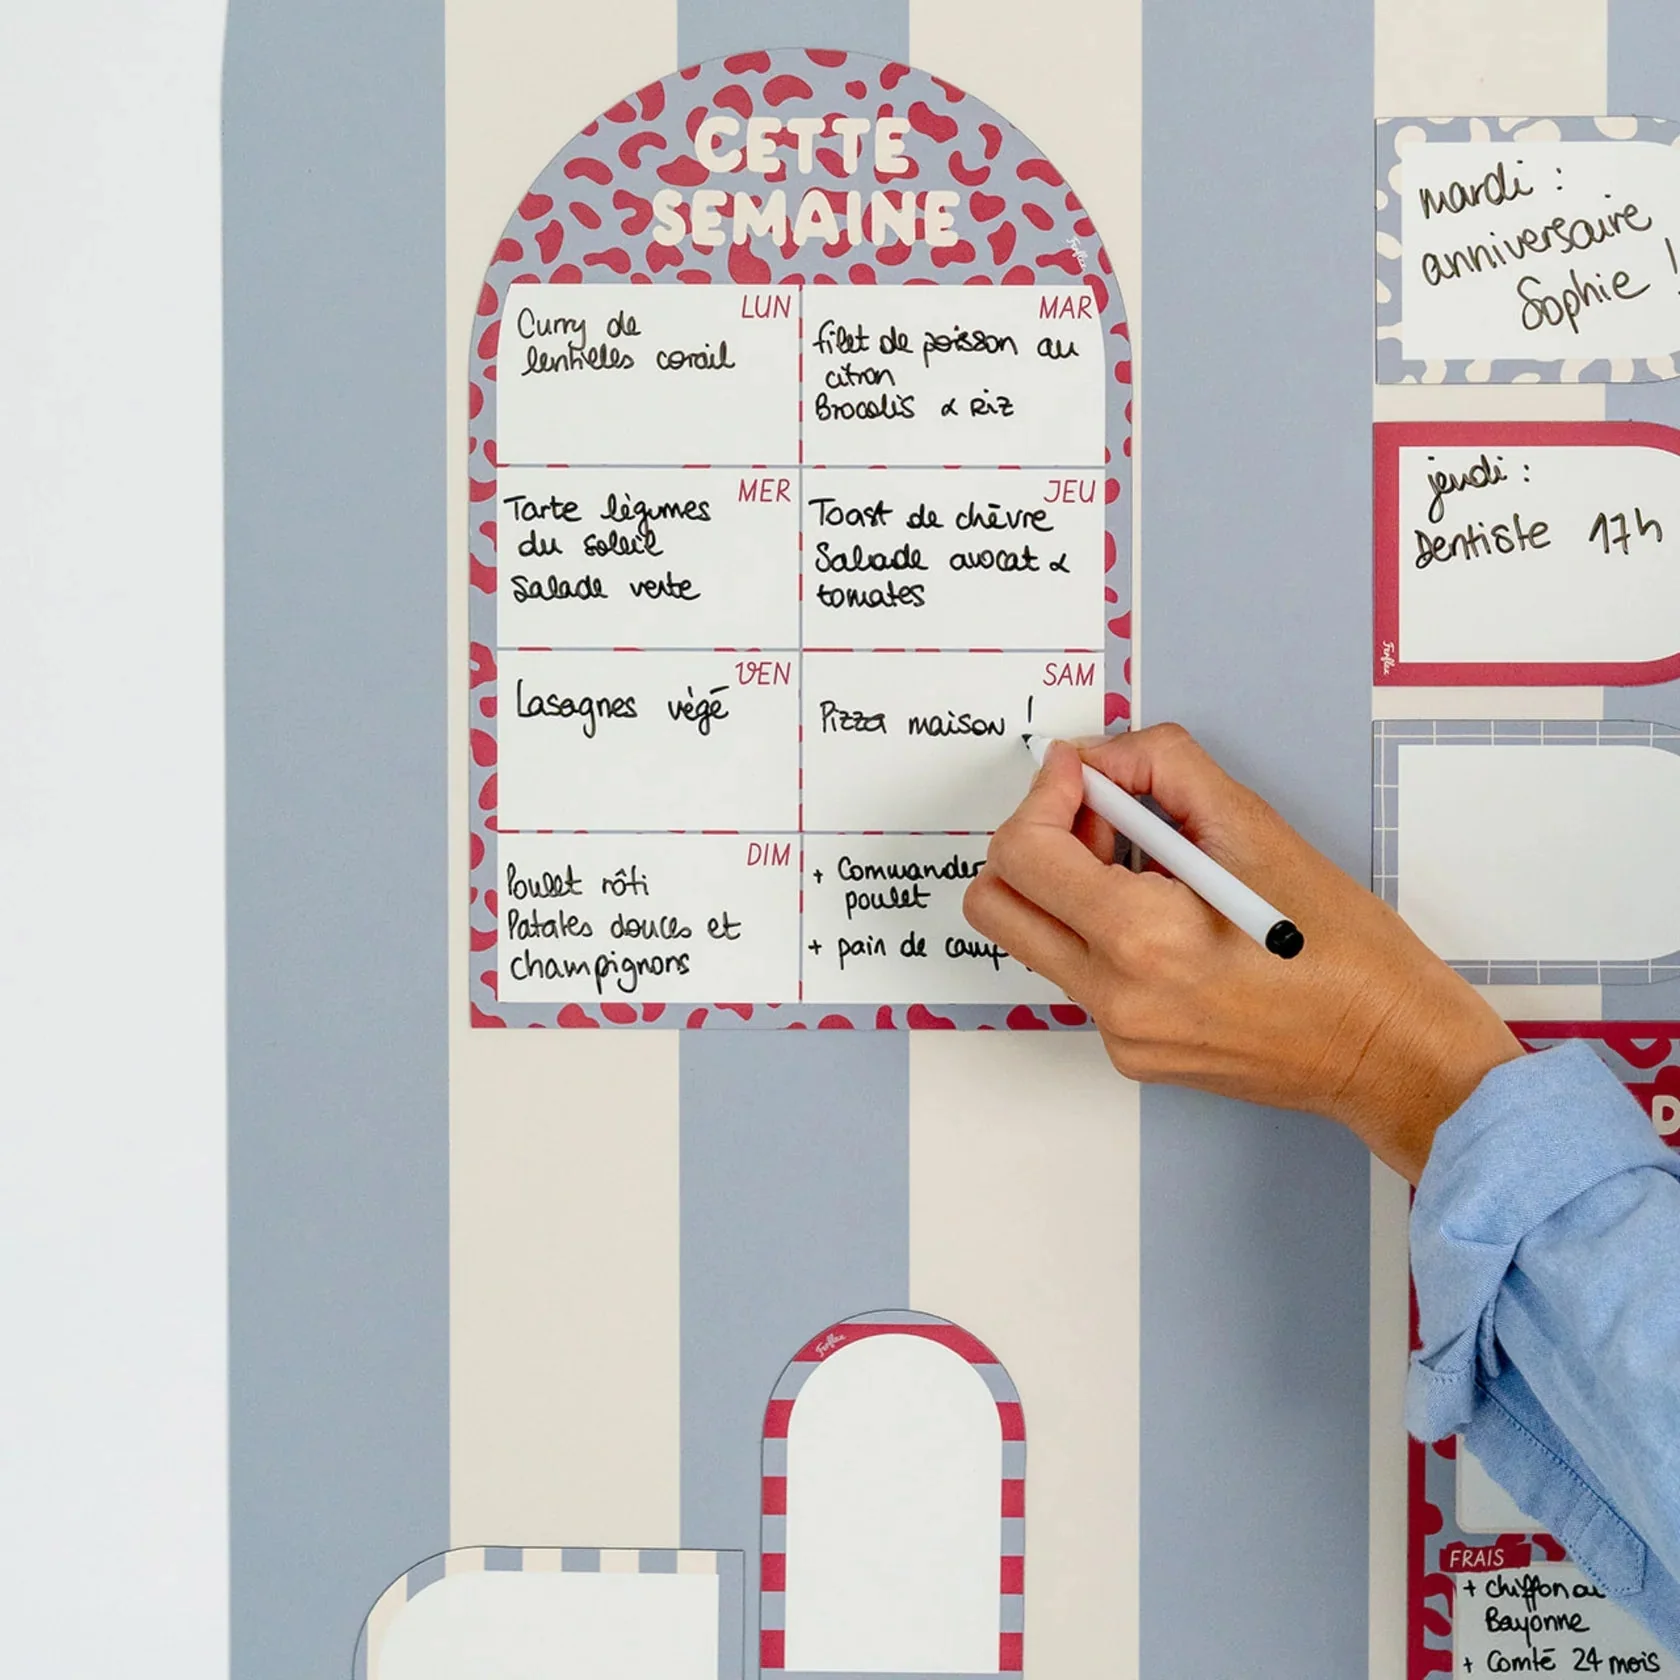 CETTE
SEMAINE
Funflex
LUN
Curry de
lentilles corail
MAR
filet de poisson au
citron
Brocolis & Riz
MER
Tarte légumes
du soleil
Salade verte
JEU
Toast de chèvre
Salade avocat &
tomates
VEN
Lasagnes végé
SAM
Pizza maison !
DIM
Poulet rôti
Patates douces et
champignons
+ Commander
poulet
+ pain de camp
mardi :
anniversaire
Sophie !
jeudi :
Dentiste 17h
Funflex
Funflex
D
FRAIS
+ chiffon
Bayonne
+ Comté 24 mois